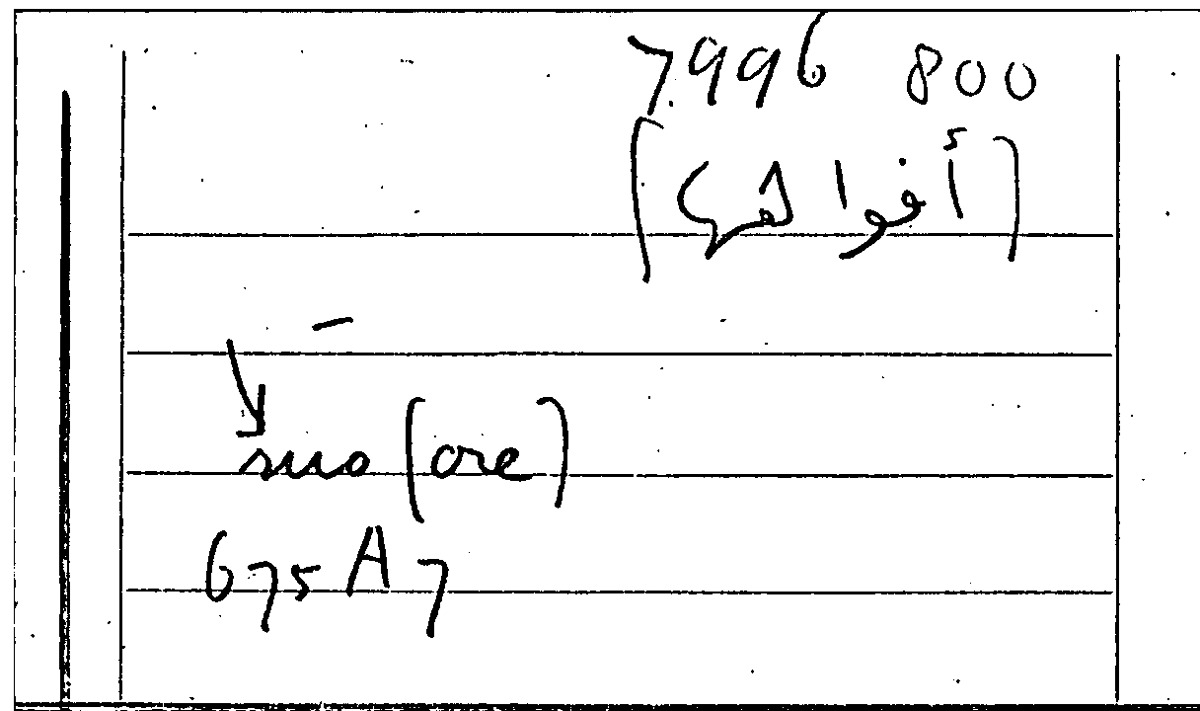 7996 800
[أفواهها]
suo (ore)
675 A 7